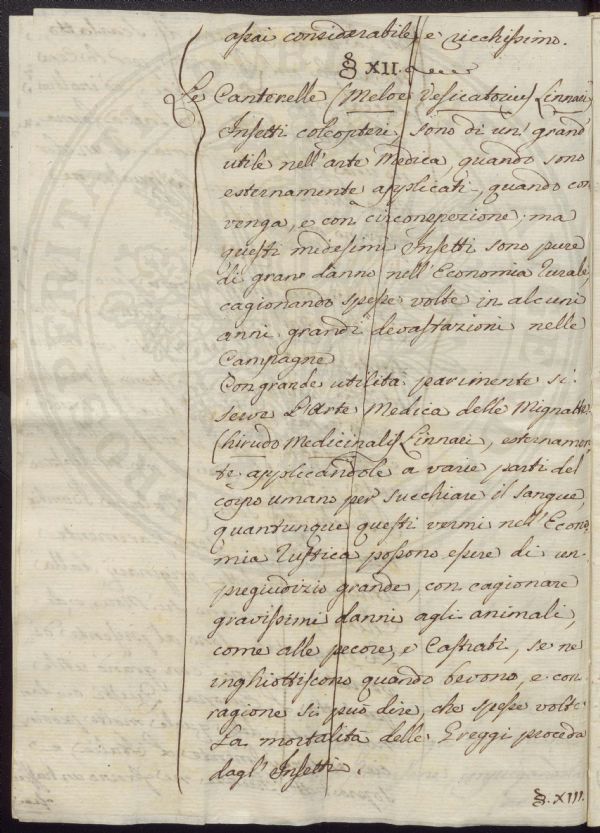 assai considerabile e ricchissimo.
§ XII.
Le Cantorelle (Meloe Vesicatorius Linnaei)
Insetti coleopteri, sono di un' grand
utile nell'arte Medica, quando sono
esternamente applicati, quando con
venga, e con circonspezione; ma
questi medesimi Insetti sono pure
di gran danno nell'Economia rurale,
cagionando spesse volte in alcuni
anni grandi devastazioni nelle
Campagne
Con grande utilità parimente si
serve l'Arte Medica delle Mignatte
(hirudo Medicinalis Linnaei, esternamen
te applicandole a varie parti del
corpo umano per succhiare il sangue,
quantunque questi vermi nell'Econo
mia rustica possono essere di un
pregiudizio grande, con cagionare
gravissimi danni agli animali,
come alle pecore, e Castrati, se ne
inghiottiscono quando bevono, e con
ragione si può dire, che spesse volte
la mortalità delle Greggi proceda
dagl' Insetti.
§. XIII.